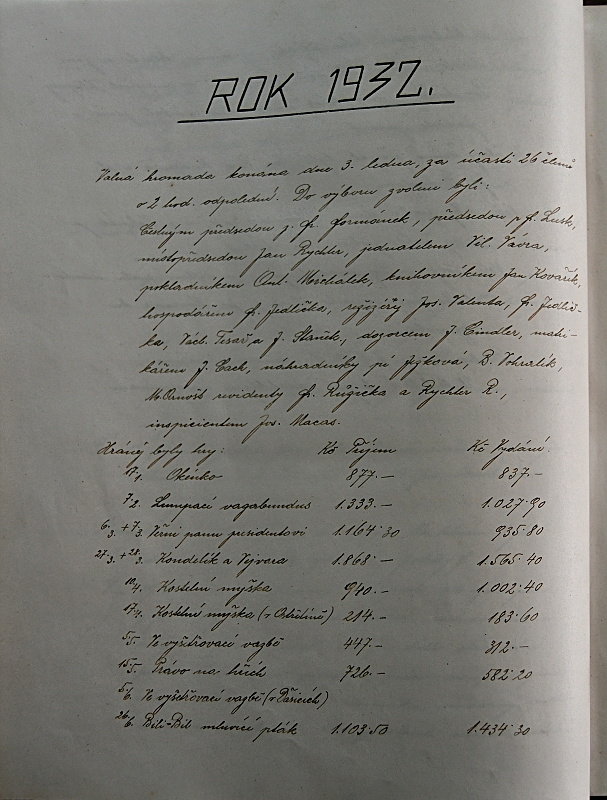 ROK 1932.
Valná hromada konána dne 3. ledna, za účasti 26 členů
o 2 hod. odpolední. Do výboru zvoleni byli:
Čestným předsedou p. Fr. Formánek, předsedou p. f. Lusk,
místopředsedou Jan Rychter, jednatelem Vil. Vávra,
pokladníkem Ant. Michálek, knihovníkem Jan Kovařík,
hospodářem Fr. Jedlička, režiséři Jos. Valenta, Fr. Jedlič-
ka, Václ. Tisař a J. Staněk, dozorcem J. Cindler, matri-
kářem J. Cack, náhradníky pí Jyřková, B. Vohralík,
M. Arnošt revidenty Fr. Růžička a Rychter R.,
inspicientem Jos. Macas.
Hrány byly hry: Kč Příjem Kč Vydání:
17/1. Okénko 877.- 837.-
7/2. Lumpaci vagabundus 1.333.- 1.027·90
6/3. + 7/3. Věrni panu presidentovi 1.164·30 935·80
27/3. + 28/3. Kondelík a Vejvara 1.868.- 1.565·40
10/4. Kostelní myška 940.- 1.002·40
17/4. Kostelní myška (v Ostředně) 214.- 183·60
5/5. Ve vyšetřovací vazbě 447.- 312.-
15/5. Právo na hřích 726.- 582·20
5/6. Ve vyšetřovací vazbě (v Pšticích)
26/6. Bili-Bil mluvící pták 1.103·50 1.434·30